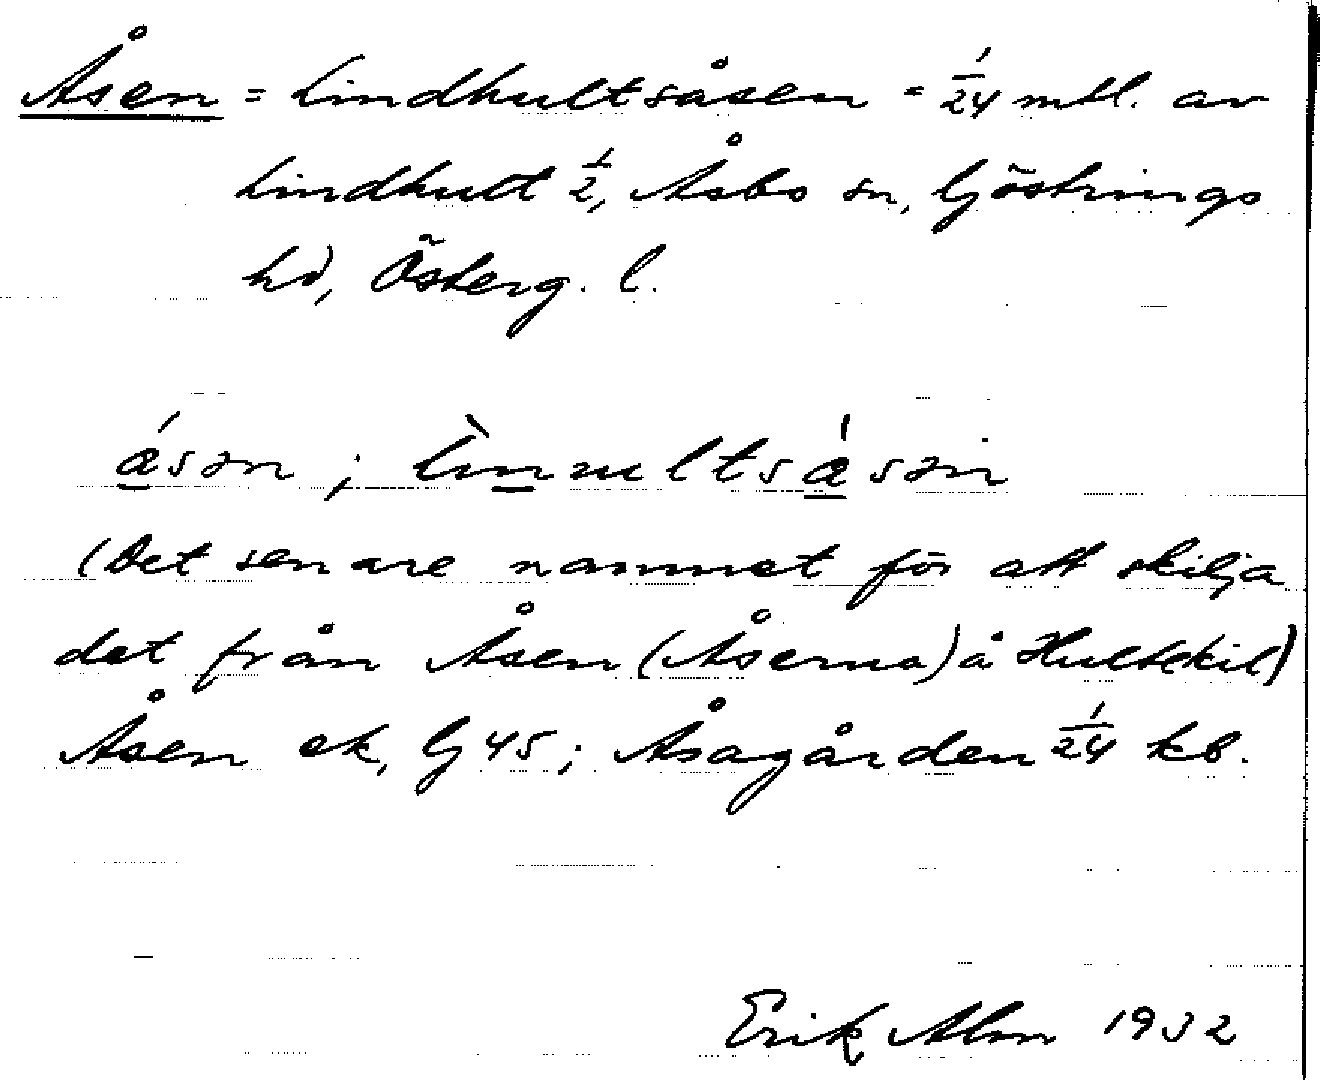 Åsen = Lindhultsåsen = 1/24 mtl. av
Lindhult 1/2, Åsbo sn, Göstrings
hd, Österg. l.
ásən; lìnnultsásən
(Det senare namnet för att skilja
det från Åsen (Åserna) å Hultskil)
Åsen ek, Gj 45; Åsagården 1/24 kb.
Erik Alm 1932